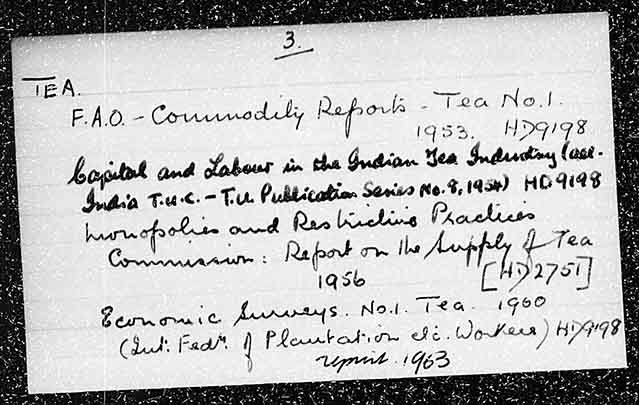 3.
TEA.
F.A.O. - Commodity Reports - Tea No.1.
1953. HD9198
Capital and Labour in the Indian Tea Industry (All-
India T.U.C. - T.U. Publication Series No. 8, 1954) HD9198
Monopolies and Restrictive Practices
Commission: Report on the Supply of Tea
1956 [HD2751]
Economic Surveys. No.1. Tea. 1960
(Int: Fedn. of Plantation etc. Workers) HD9198
reprint. 1963